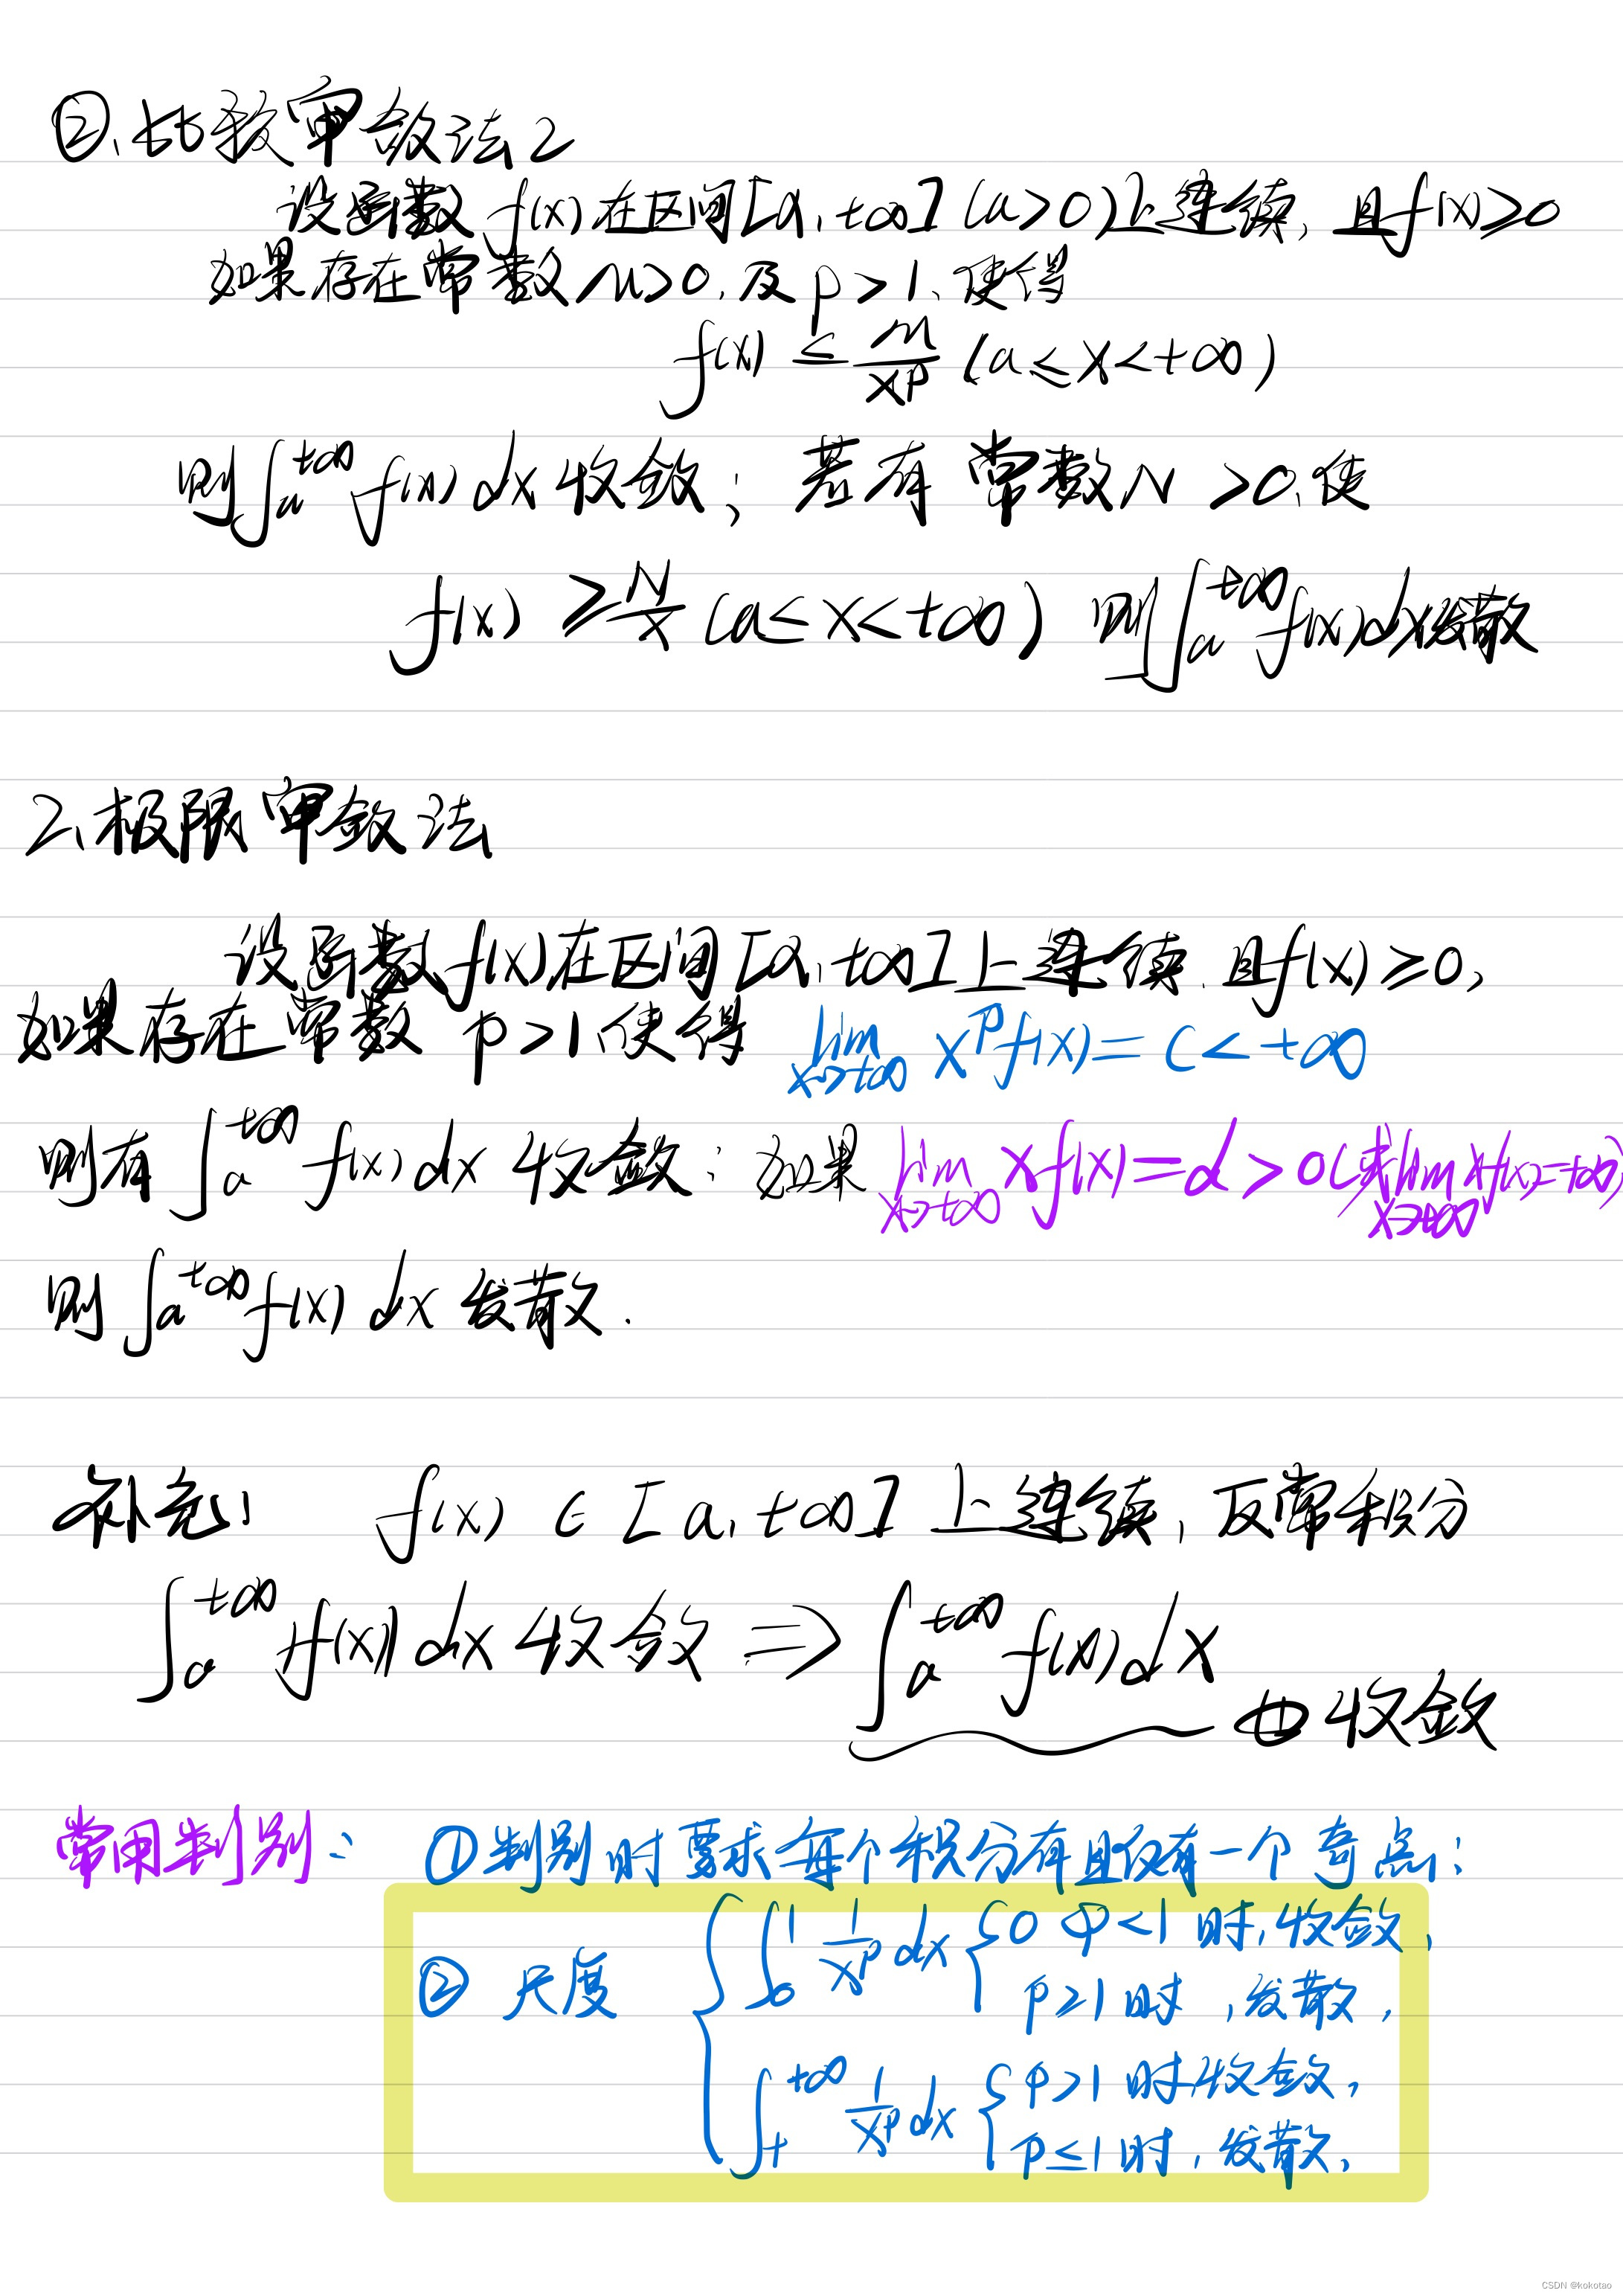 ②、比较审敛法2
设函数 f(x) 在区间 [a, +∞] (a>0) 上连续, 且 f(x)≥0
如果存在常数 M>0, 及 p>1, 使得
f(x) ≤ M/x^p (a≤x<+∞)
则 ∫_a^{+∞} f(x) dx 收敛; 若有常数 N>0, 使
f(x) ≥ N/x (a≤x<+∞) 则 ∫_a^{+∞} f(x) dx 发散
2、极限审敛法
设函数 f(x) 在区间 [a, +∞] 上连续, 且 f(x)≥0,
如果存在常数 p>1, 使得 lim_{x→+∞} x^p f(x) = c < +∞
则有 ∫_a^{+∞} f(x) dx 收敛; 如果 lim_{x→+∞} x f(x) = d > 0 (或 lim_{x→+∞} x f(x) = +∞)
则 ∫_a^{+∞} f(x) dx 发散.
补充: f(x) ∈ [a, +∞] 上连续, 反常积分
∫_a^{+∞} |f(x)| dx 收敛 ⇒ ∫_a^{+∞} f(x) dx
也收敛
常用判别: ①判别时要求每个积分有且仅有一个奇点;
② 尺度 { ∫_0^1 1/x^p dx { 0<p<1 时, 收敛,
p≥1 时, 发散,
∫_1^{+∞} 1/x^p dx { p>1 时, 收敛,
p≤1 时, 发散,
CSDN @kokotao